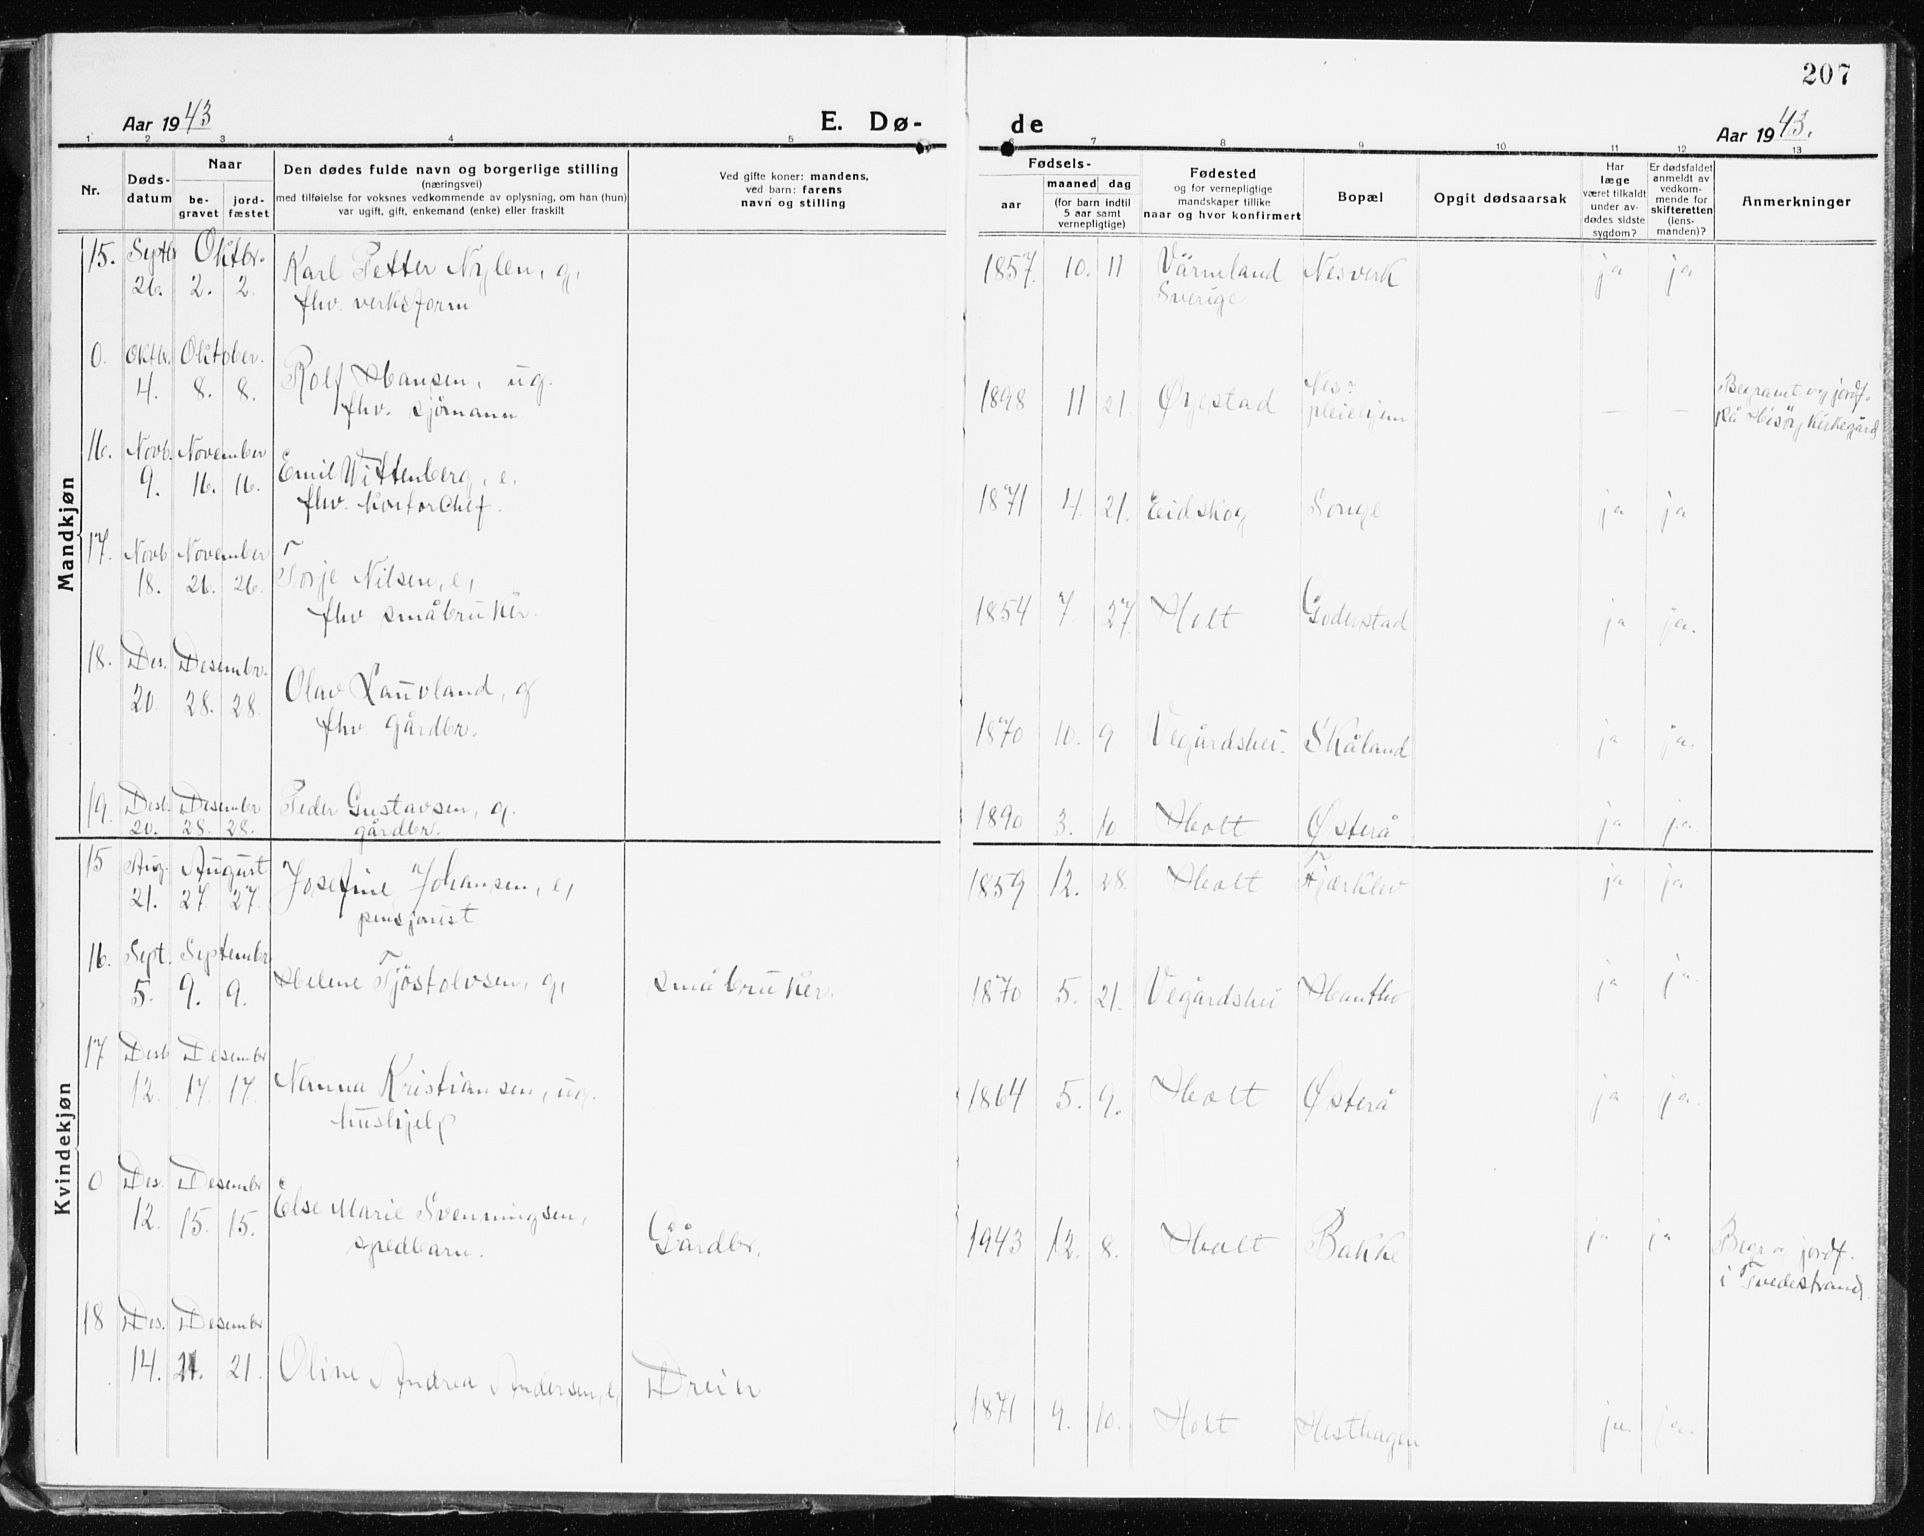 207
Aar 1943
E. Dø-
de
Aar 1943.
1 2 3 4 5 6 7 8 9 10 11 12 13
Nr.
Døds-
datum
Naar
be-
gravet
jord-
fæstet
Den dødes fulde navn og borgerlige stilling
(næringsvei)
med tilføielse for voksnes vedkommende av oplysning, om han (hun)
var ugift, gift, enkemand (enke) eller fraskilt
Ved gifte koner: mandens,
ved barn: farens
navn og stilling
Fødsels-
aar
maaned dag
(for barn indtil
5 aar samt
vernepligtige)
Fødested
og for vernepligtige
mandskaper tillike
naar og hvor konfirmert
Bopæl
Opgit dødsaarsak
Har
læge
været tilkaldt
under av-
dødes sidste
sygdom?
Er dødsfaldet
anmeldt av
vedkom-
mende for
skifteretten
(lens-
manden)?
Anmerkninger
Mandkjøn
15. Septbr Oktbr.
26. 2. 2. Karl Petter Nylen, g, 1857. 10. 11 Värmland Nesverk ja ja
fhv. verksform Sverige
0. Oktbr. Oktober.
4. 8. 8. Rolf Hansen, ug. 1898 11 21. Øyestad Nes- — —
fhv. sjömann pleiehjem
Begravet og jordf.
på Hisöy kirkegård
16. Novb. November
9. 16. 16. Emil Wittenberg, e. 1871 4. 21. Eidskog Songe ja ja
fhv. kontorchef.
17. Novb November
18. 26. 26. Torje Nilsen, e, 1854 7. 27. Holt Goderstad ja ja.
fhv småbruker.
18. Des. Desembr.
20. 28. 28. Olav Lauvland, g 1870 10. 9 Vegårdshei. Skåland ja ja.
fhv. gårdbr.
19. Desb. Desember
20. 28. 28. Peder Gustavsen, g. 1890 3. 10 Holt Østerå ja ja.
gårdbr.
Kvindekjøn
15 Aug. August
21. 27. 27. Josefine Johansen, e, 1859 12. 28. Holt Fjærklev ja ja
pensjonist
16. Sept. Septembr
5. 9. 9. Helene Tjöstolvsen, g, småbruker. 1870 5. 21. Vegårdshei Hantho ja ja.
17 Desb Desember
12. 17. 17. Nanna Kristiansen, ug. 1864 5. 9. Holt Østerå ja ja.
hushjelp
0 Des. Desembr
12. 15. 15. Else Marie Svenningsen, Gårdbr. 1943 12. 8. Holt Bakke ja ja
spedbarn.
Begr og jordf.
i Tvedestrand.
18 Des. Desembr
14. 21. 21. Oline Andrea Andersen, e, Dreier 1871 9. 10. Holt Hesthagen ja. ja.